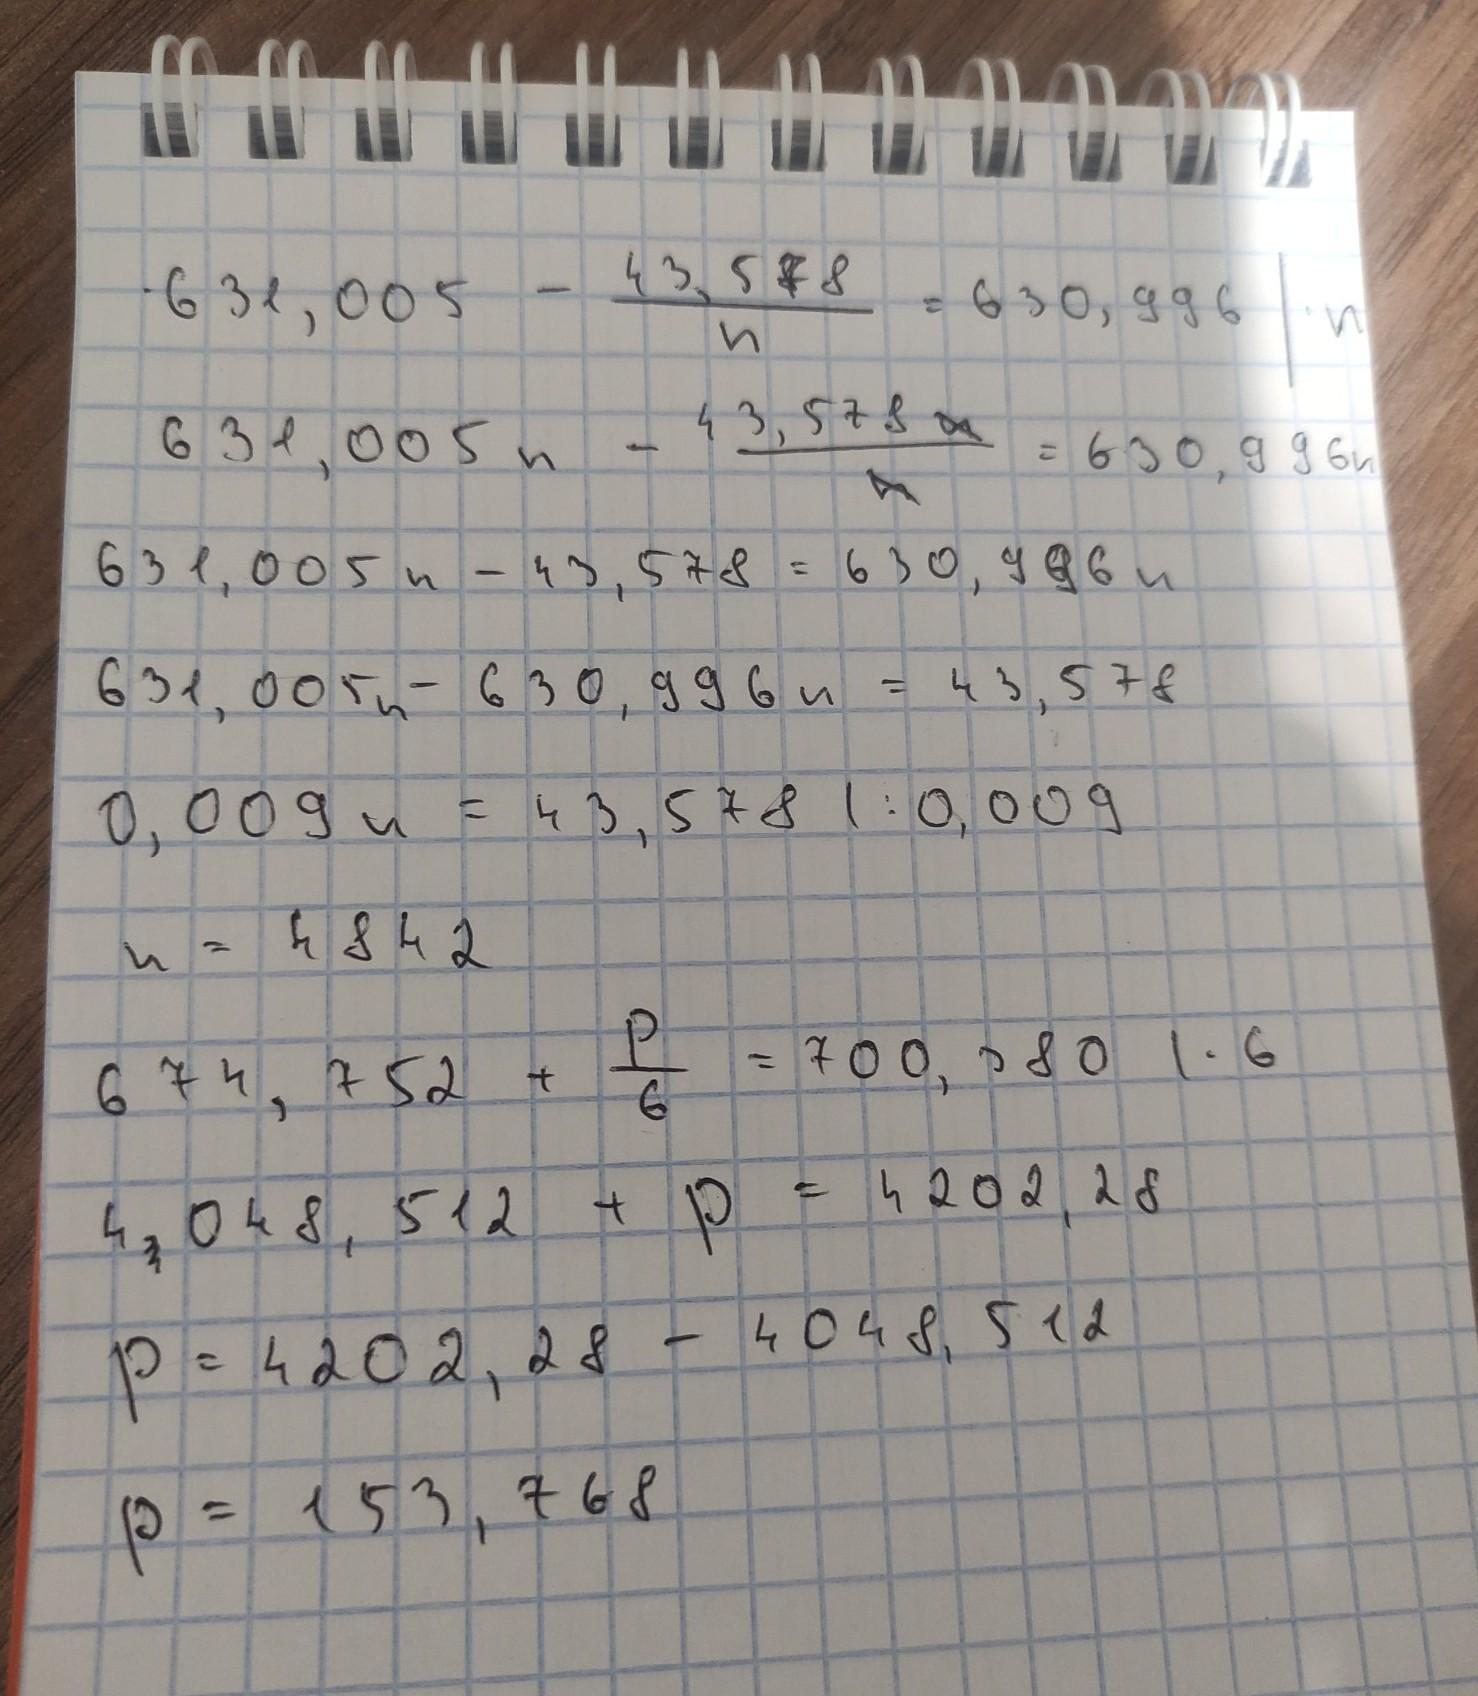 631,005 - 43,578/n = 630,996 | · n
631,005n - 43,578n/n = 630,996n
631,005n - 43,578 = 630,996n
631,005n - 630,996n = 43,578
0,009n = 43,578 | : 0,009
n = 4842
674,752 + p/6 = 700,380 | · 6
4,048,512 + p = 4202,28
p = 4202,28 - 4048,512
p = 153,768